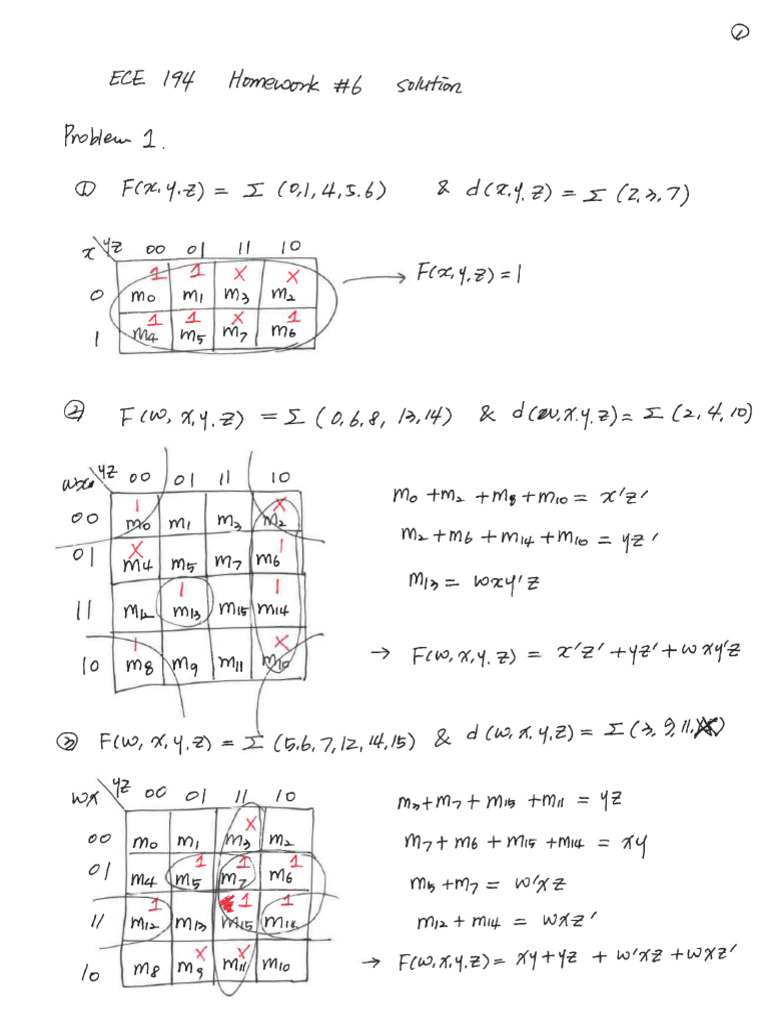 1
ECE 194 Homework #6 solution
Problem 1.
① F(x,y,z) = Σ (0,1,4,5,6) & d(x,y,z) = Σ (2,3,7)
x yz 00 01 11 10
1 1 X X
0 m0 m1 m3 m2 → F(x,y,z) = 1
1 1 X 1
1 m4 m5 m7 m6
② F(w,x,y,z) = Σ (0,6,8,13,14) & d(w,x,y,z) = Σ (2,4,10)
wx yz 00 01 11 10
1 X
00 m0 m1 m3 m2
X 1
01 m4 m5 m7 m6
1 1
11 m12 m13 m15 m14
1 X
10 m8 m9 m11 m10
m0 + m2 + m8 + m10 = x'z'
m2 + m6 + m14 + m10 = yz'
m13 = wxy'z
→ F(w,x,y,z) = x'z' + yz' + wxy'z
③ F(w,x,y,z) = Σ (5,6,7,12,14,15) & d(w,x,y,z) = Σ (3,9,11,)
wx yz 00 01 11 10
X
00 m0 m1 m3 m2
1 1 1
01 m4 m5 m7 m6
1 1 1
11 m12 m13 m15 m14
X X
10 m8 m9 m11 m10
m3 + m7 + m15 + m11 = yz
m7 + m6 + m15 + m14 = xy
m5 + m7 = w'xz
m12 + m14 = wxz'
→ F(w,x,y,z) = xy + yz + w'xz + wxz'